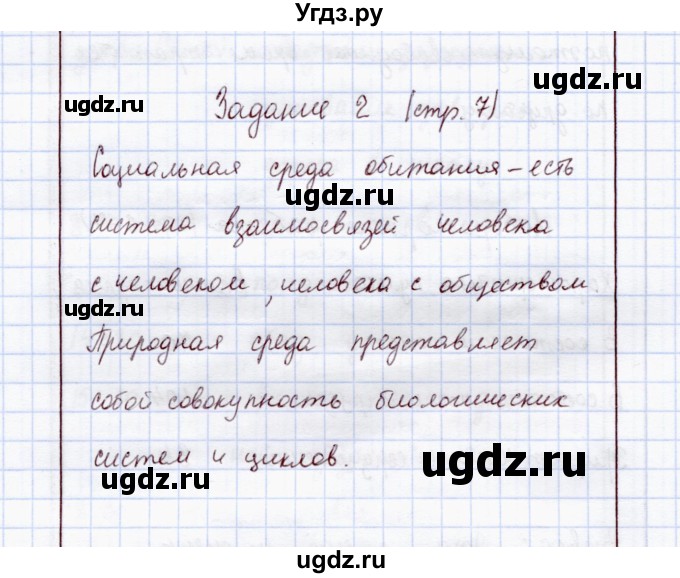 Угдз.ру
ugdz.ru
Задание 2 (стр. 7)
ugdz.ru
ugdz.ru
Социальная среда обитания - есть
ugdz.ru
система взаимосвязей человека
с человеком, человека с обществом.
ugdz.ru
Природная среда представляет
ugdz.ru
собой совокупность биологических
систем и циклов.
ugdz.ru
ugdz.ru
ugdz.ru